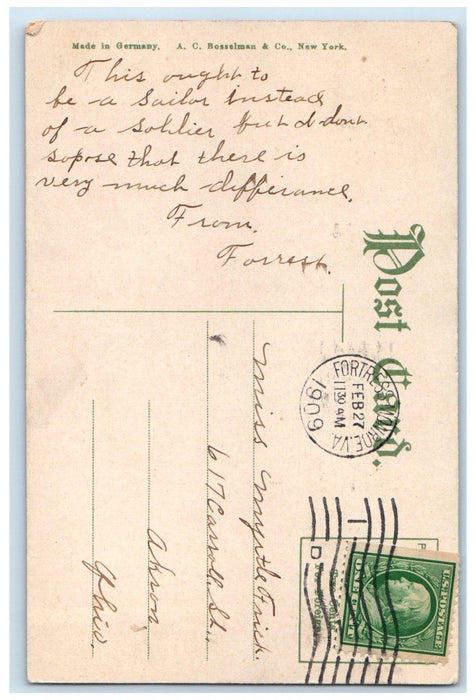 Made in Germany. A. C. Bosselman & Co., New York.
This ought to
be a Sailor instead
of a soldier but I dont
sopose that there is
very much differance.
From.
Forrest.
Post Card.
FORTRESS MONROE, VA.
FEB 27
1130 AM
1909
1
D
U.S. POSTAGE
ONE CENT
Miss Myrtle Frick.
617 Carroll St.,
Akron
Ohio.